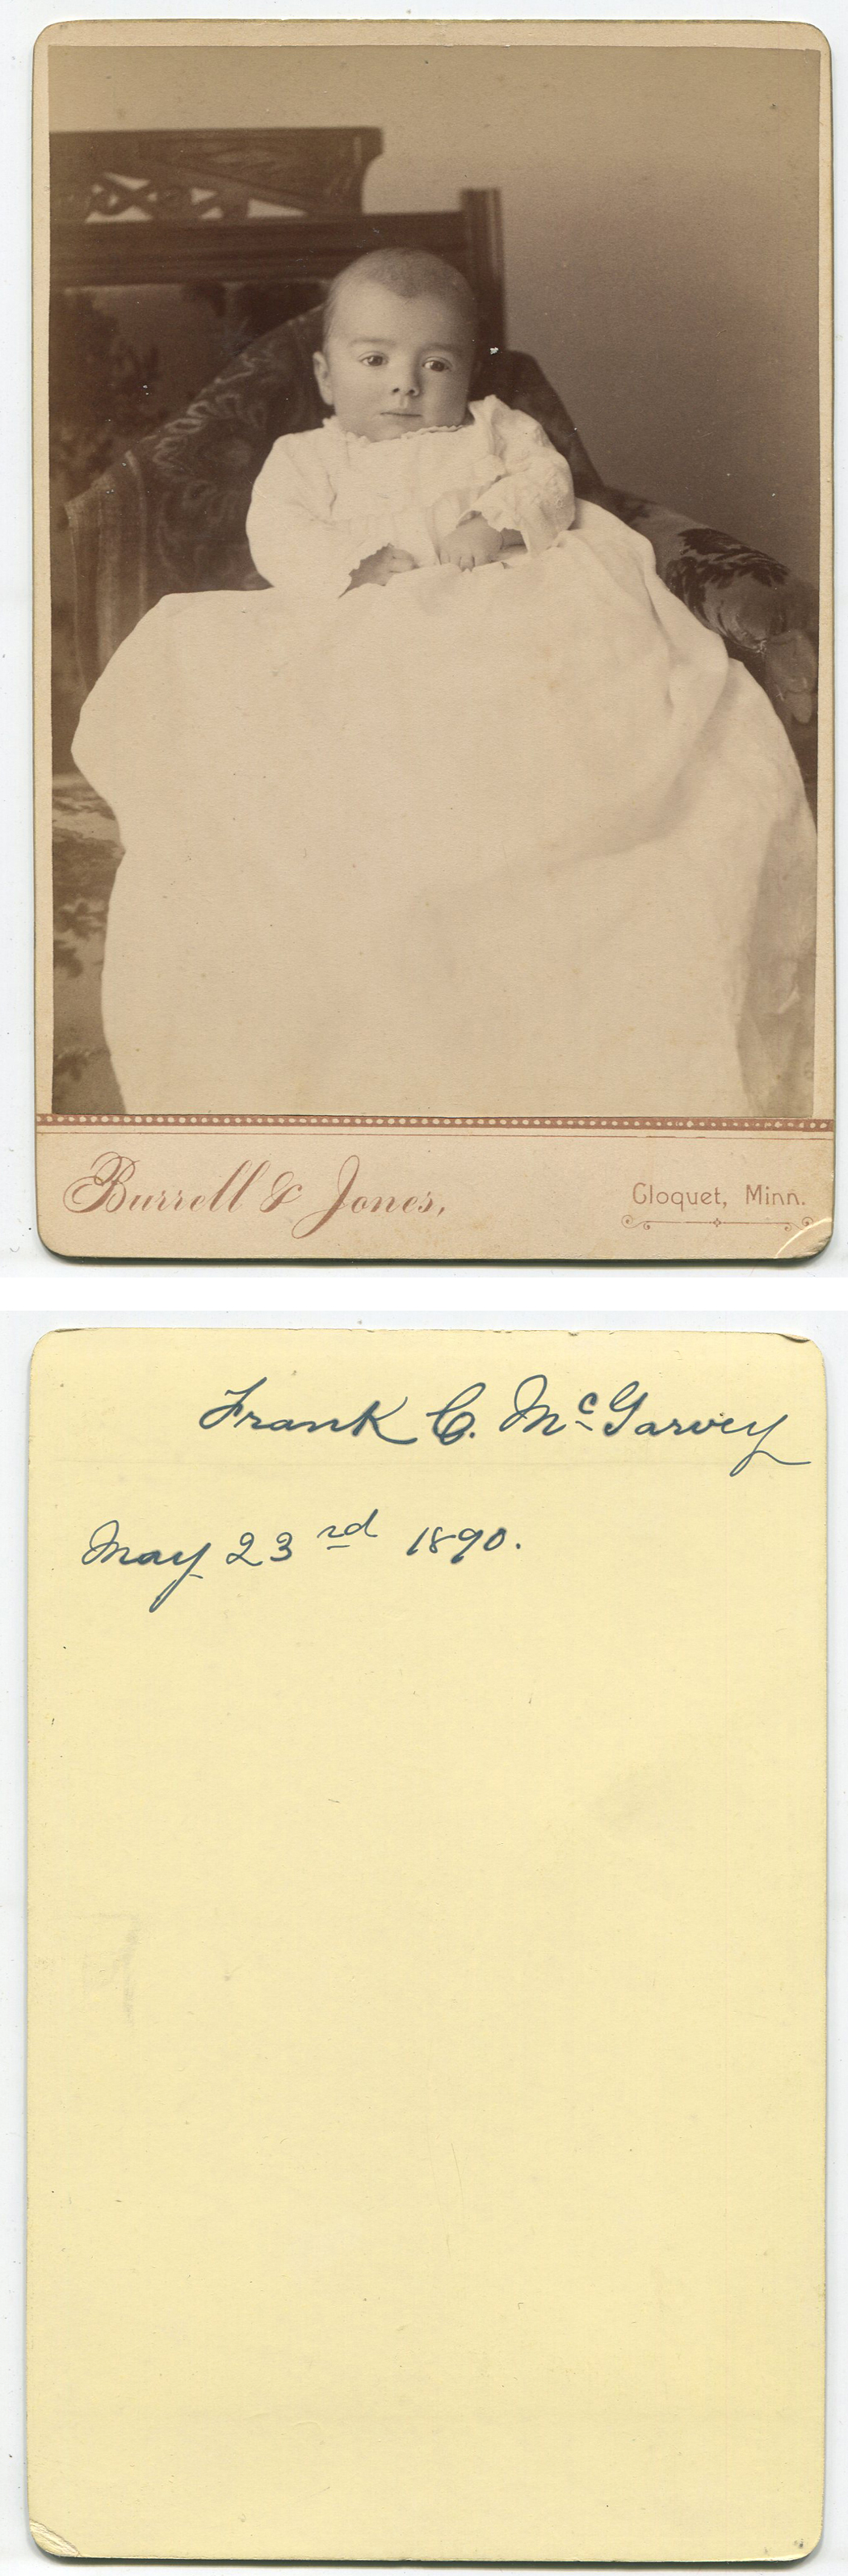 Burrell & Jones, Cloquet, Minn.
Frank C. McGarvey
May 23rd 1890.